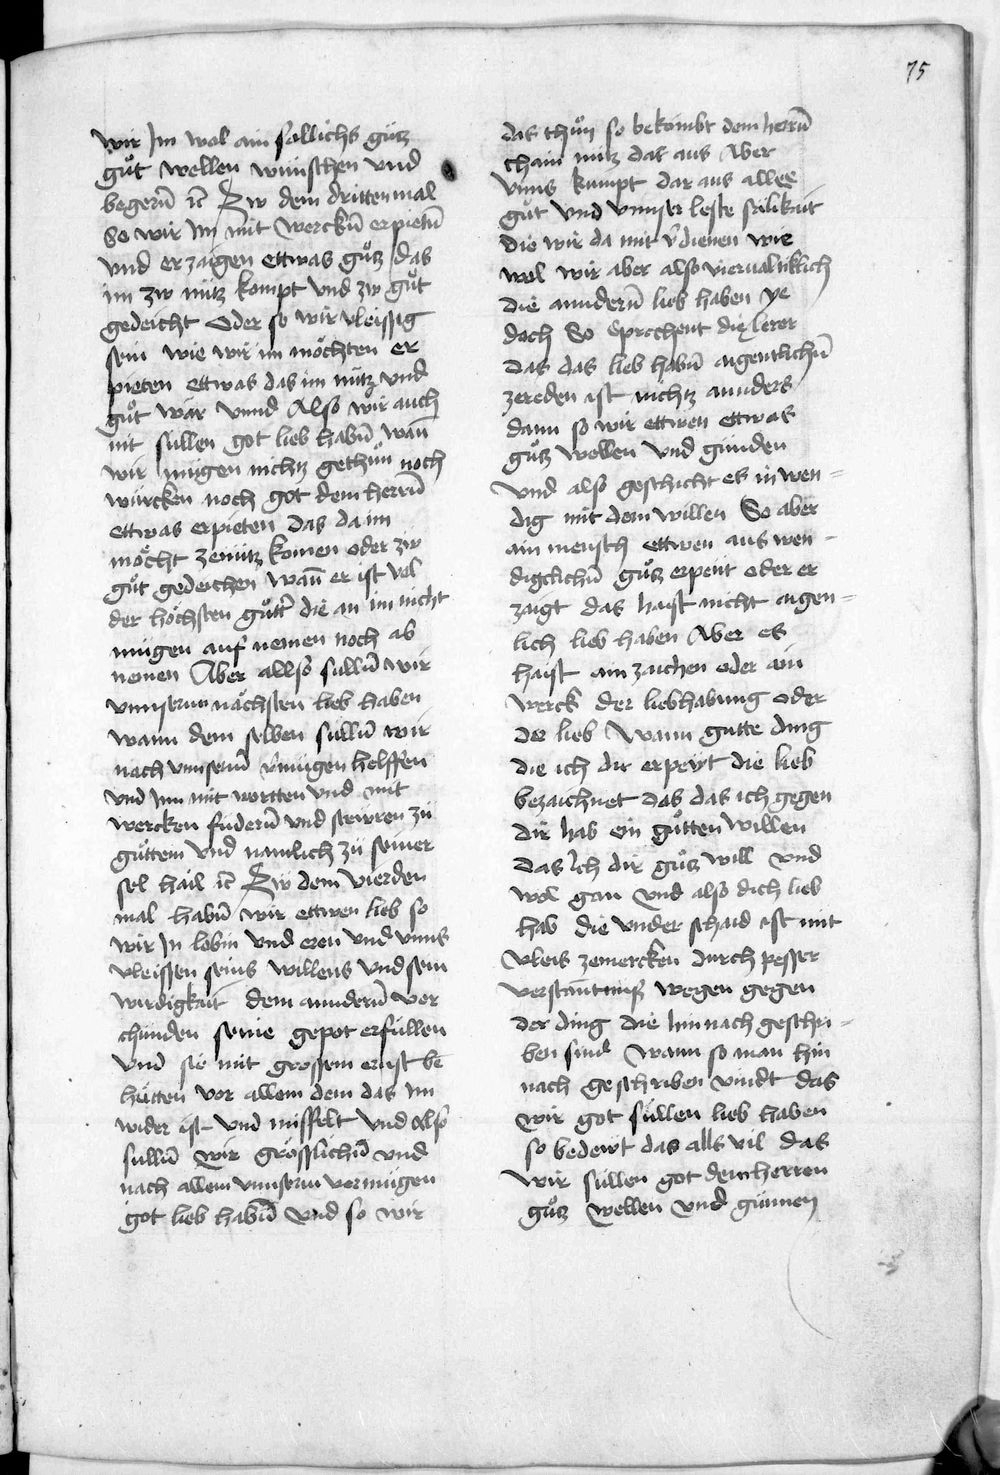 75
wir Im wol ain sallichs gücz
guͦt wellen wünschen vnd
begern̄ ꝛc Zw dem dritten mal
So wir Im mit werckn̄ erpietn̄
vnd erzaigen ettwas guͦcz das
im zw nücz kompt vnd zw guͦt
gedeicht Oder so wir vleissig
sein wie wir im möchten er
pieten ettwas das im nücz vnd
guͦt wär vnnd Also wir auch
nit süllen got lieb habn̄ wan̄
wir mügen nichcz gethuͦn noch
würcken noch got dem herrn̄
ettwas erpieten das da im
möcht zenücz komen oder zw
guͦt gedeichen wan̄ er ist vol
der höchsten guͦtt̄ die an im nicht
mügen auf nemen noch ab
nemen Aber allso sulln̄ wir
vnnserm nächsten lieb haben
wann dem selben sülln̄ wir
nach vnnserm v̄mügen helffen
vnd Im mit wortten vnd mit
wercken fudern̄ vnd stewren zü
guͦttem vnd namlich zü seiner
sel hail ꝛc Zw dem vierden
mal habn̄ wir ettwen lieb so
wir In lobm vnd eren vnd vnns
vleissen seins willens vnd sein
wirdigkait dem anndern̄ ver
chünden seine gepot erfüllen
vnd sie mit grossem ernst be
hütten vor allem dem das Im
wider ist vnd missfelt vnd Also
sulln̄ wir grösslichn̄ vnd
nach allem vnnserm vermügen
got lieb habn̄ vnd so wir
das thuͦn so bekombt dem herrn̄
chain nücz dar aus Aber
vnns kumpt dar aus allee
guͦt vnd vnnser leste salikait
die wir da mit v̄dienen wie
wol wir aber also viervaltiklich
die anndern̄ lieb haben ye
doch So Sprechent die lerer
das das lieb habn̄ aigentlichn̄
zereden ist nichcz annders
dann so wir ettwen ettwas
guͦcz wellen vnd günden
vnd also geschicht es inwen-
dig mit dem willen So aber
ain mensch ettwen aus wen-
digclichn̄ guͦcz erpeut oder er
zaigt das haist nicht aigen-
lich lieb haben Aber es
haist ain zaichen oder ain
werck der liebhabung oder
der lieb Wann gutte ding
die ich dir erpeyt die lieb
bezaichnet das das ich gegen
dir hab ein guͦtten willen
das Ich dir guͦcz will vnd
wol gan vnd also dich lieb
hab die vnder schaid ist mit
vleis zemercken durch pesser
verstantnuß wegen gegen
der ding die hin nach geschri-
ben sind Wann so man hin
nach geschriben vindt das
wir got süllen lieb haben
so bedewt das alls vil das
wir süllen got dem herren
guͦcz wellen vnd günnen